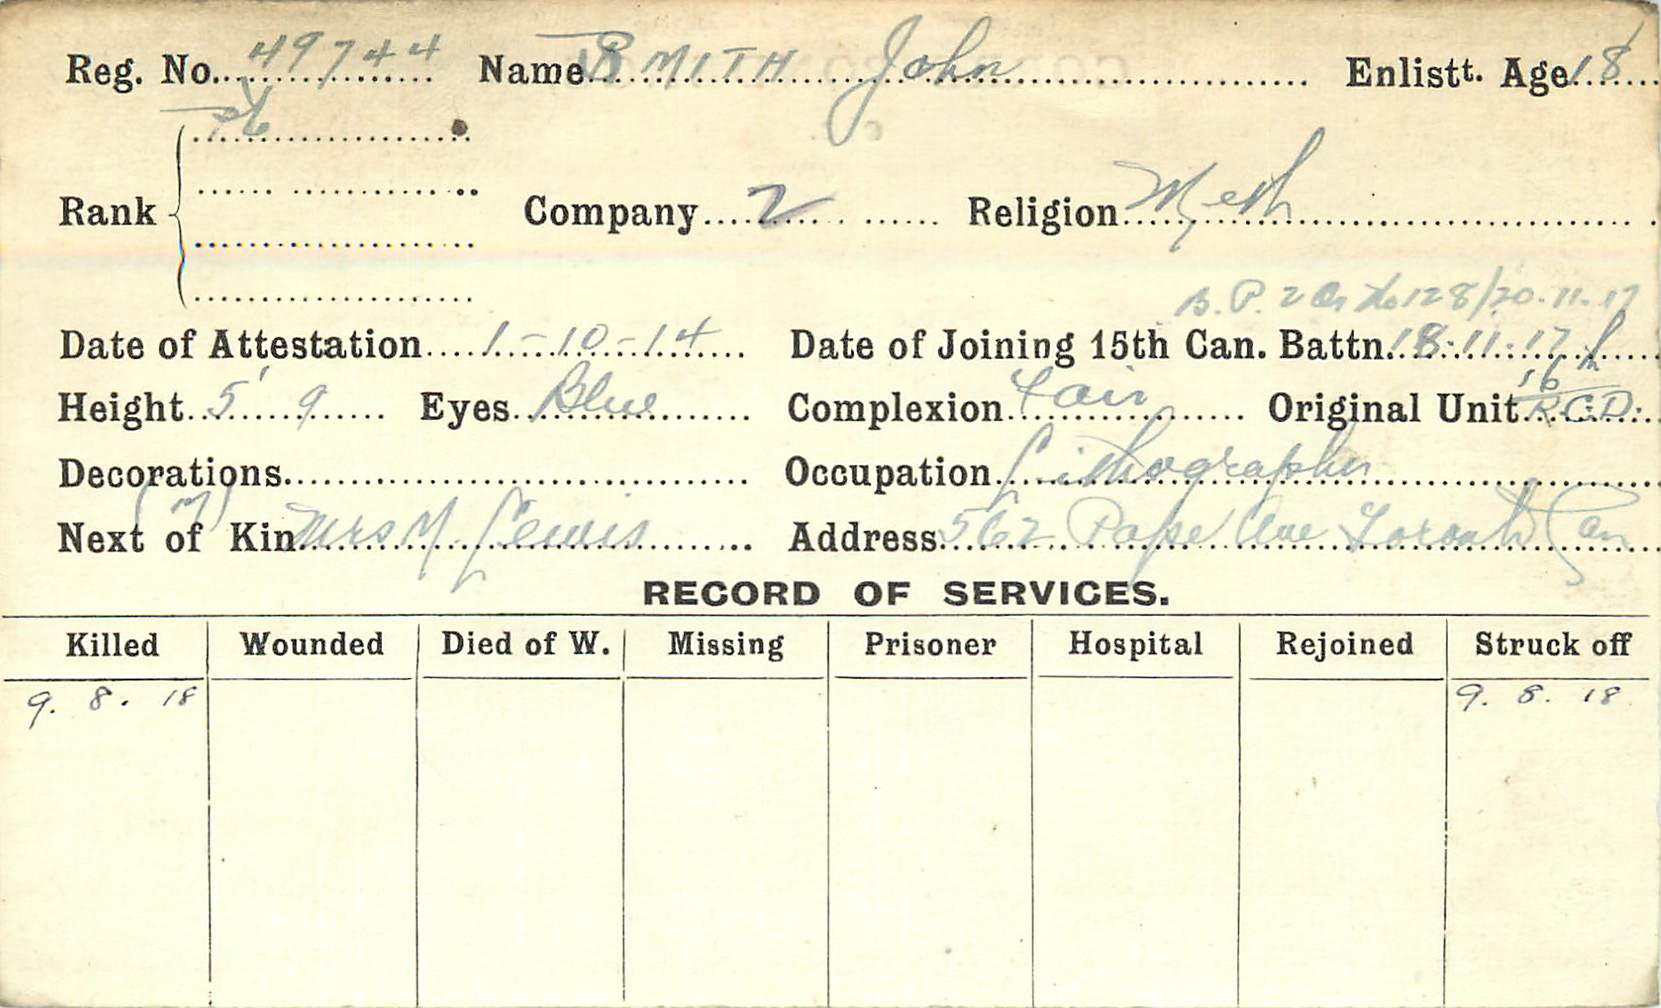 Reg. No. 49744 Name SMITH John Enlistt. Age 18
Pte
Rank Company 2 Religion Meth
B. P. 2 Or No 128/20.11.17
Date of Attestation 1-10-14 Date of Joining 15th Can. Battn. 18.11.17
Height 5' 9 Eyes Blue Complexion Fair Original Unit R.C.D.
Decorations Occupation Lithographer
(M)
Next of Kin Mrs M Lewis Address 562 Pape Ave Toronto Can
RECORD OF SERVICES.
Killed Wounded Died of W. Missing Prisoner Hospital Rejoined Struck off
9. 8. 18 9. 8. 18